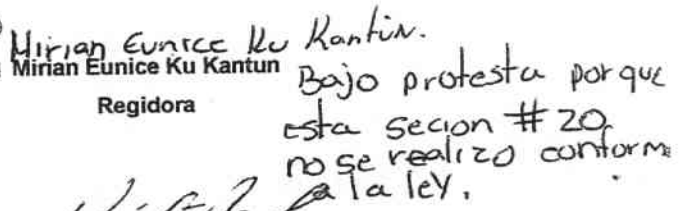 Mirian Eunice Ku Kantun.
Mirian Eunice Ku Kantun
Regidora
Bajo protesta porque
esta secion #20
no se realizo conforme
a la ley.